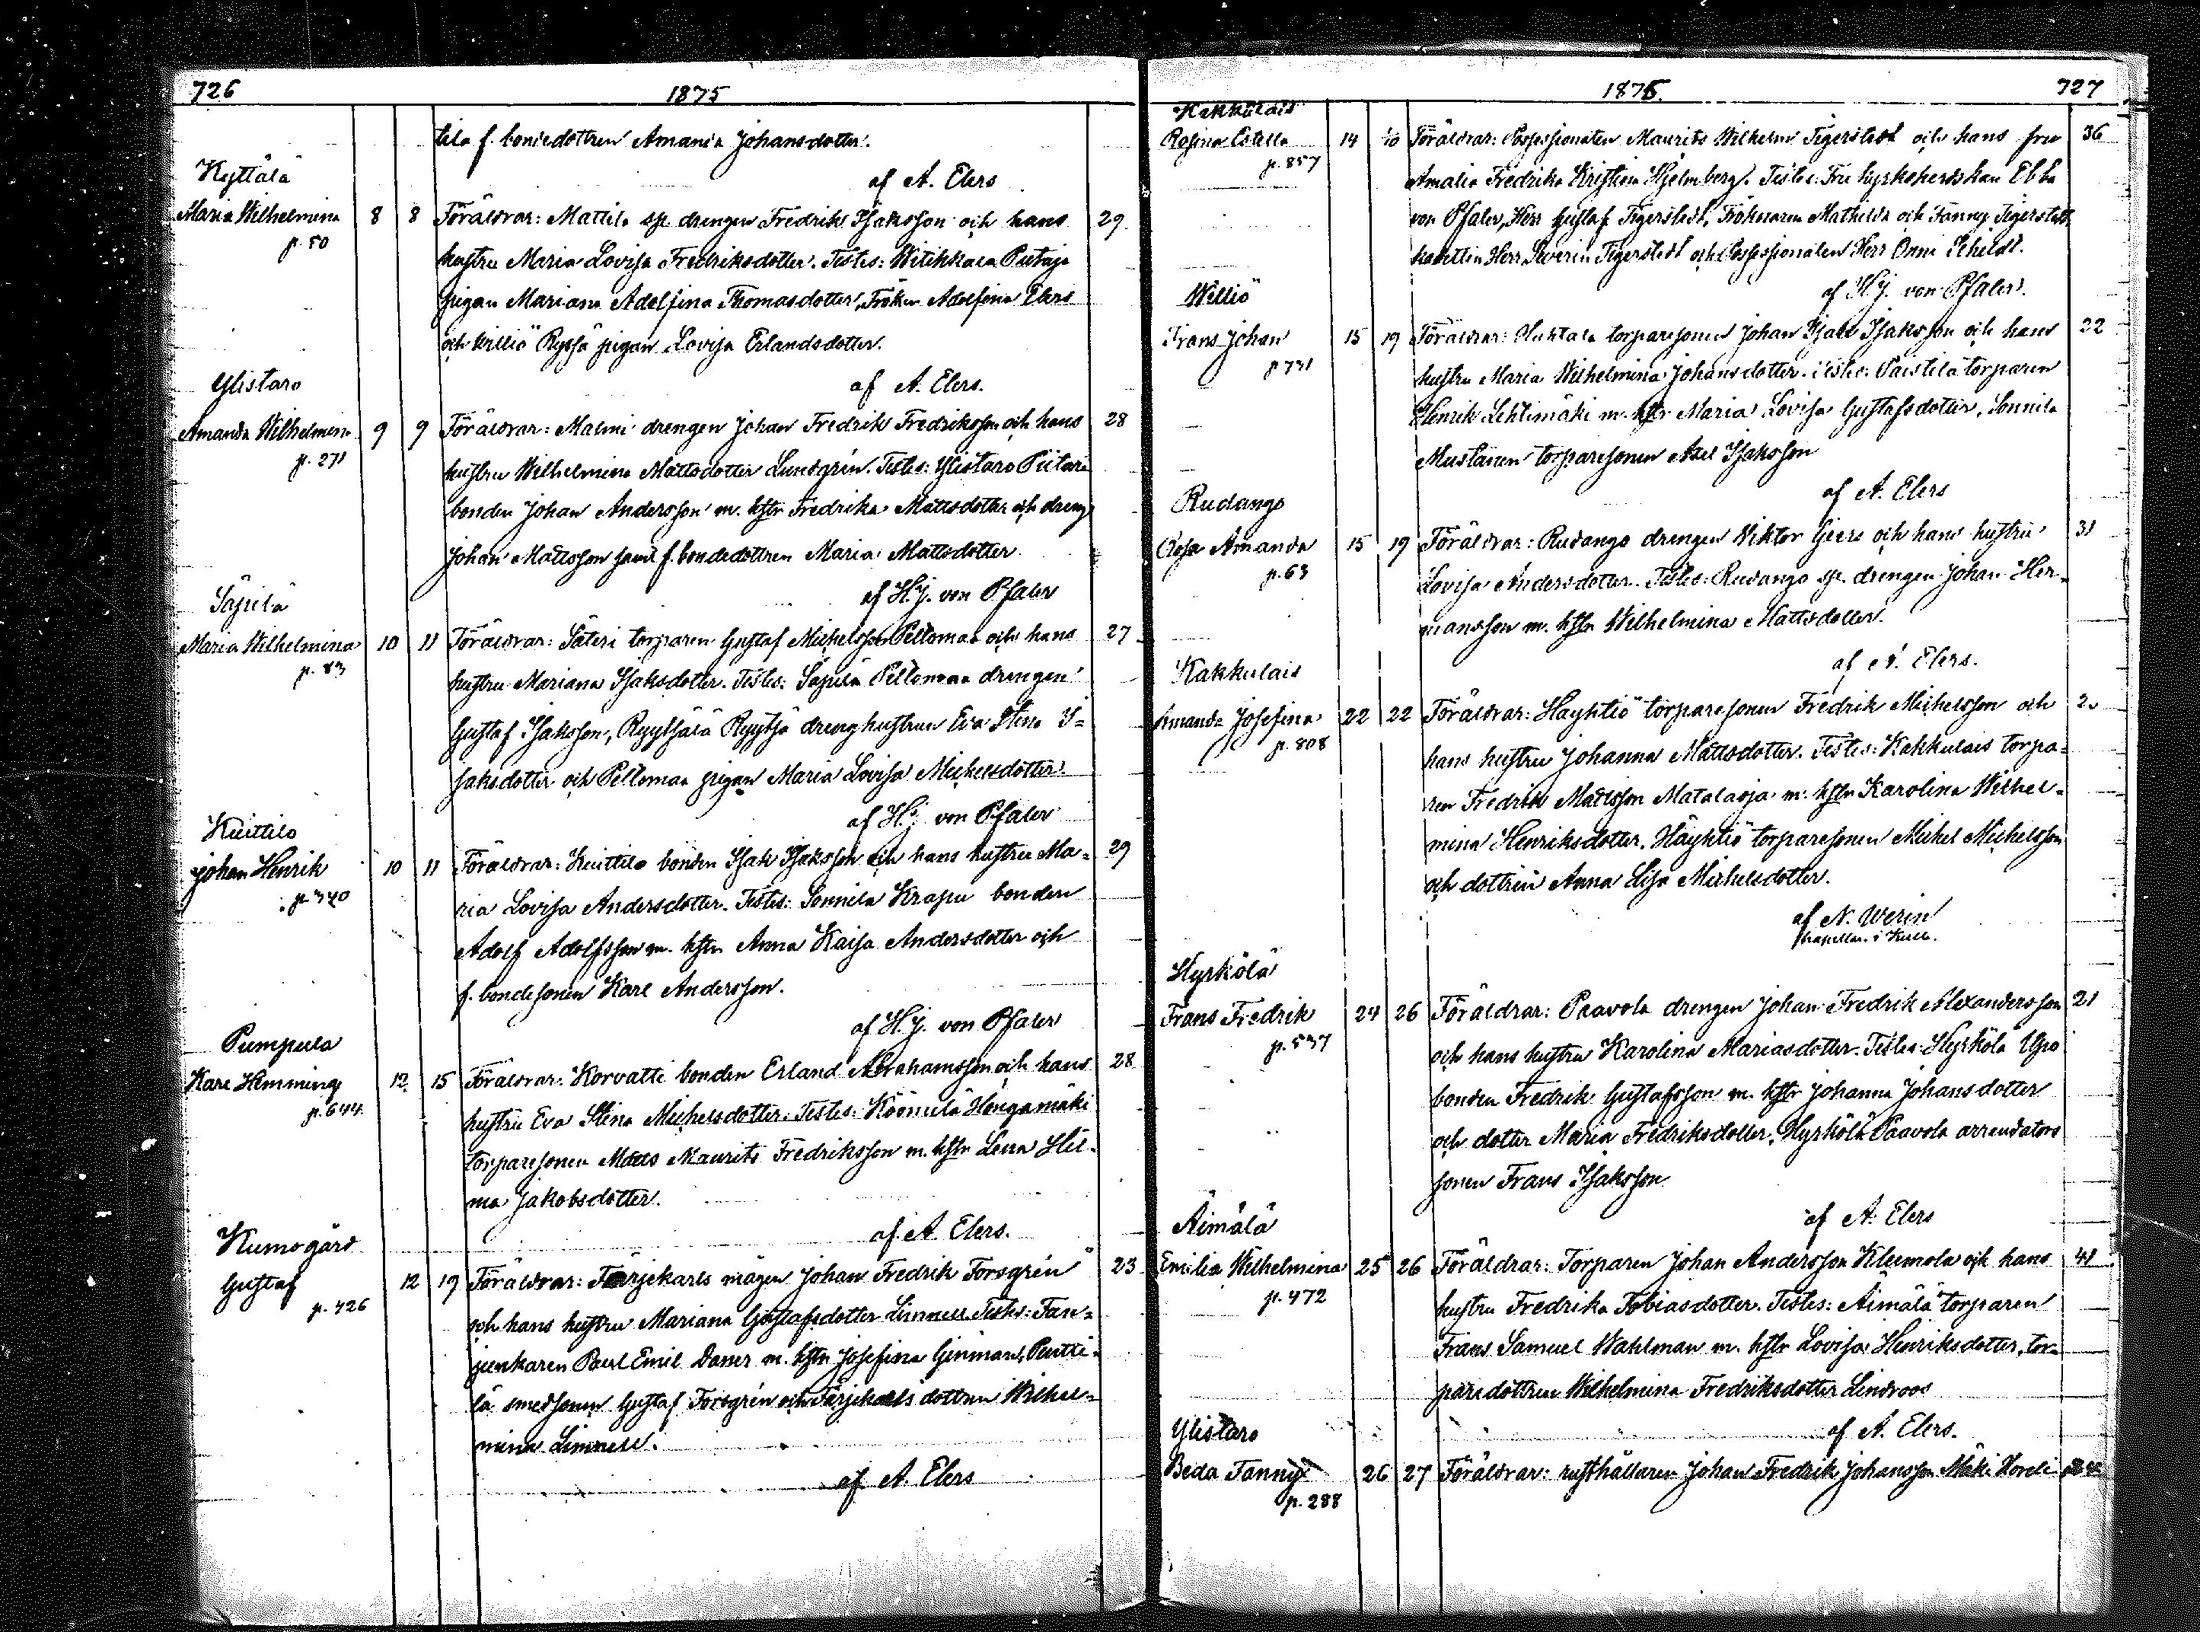 726
1875
tila f. bondedottren Amanda Johansdotter.
af A. Elers
Kyttälä
Maria Wilhelmina 8 8 Föräldrar: Mattila sp. drengen Fredrik Isaksson och hans 29
p. 50
hustru Maria Lovisa Fredriksdotter. Testes: Witikkala
pigan Mariana Adolfina Thomasdotter, Fröken Adolfina Elers
och Williö Ryssä pigan Lovisa Erlandsdotter.
af A. Elers.
Ylistaro
Amanda Wilhelmina 9 9 Föräldrar: Malmi drengen Johan Fredrik Fredriksson och hans 28
p. 271
hustru Wilhelmina Mattsdotter Lundgrén. Testes: Ylistaro Piitari
bonden Johan Andersson m. hstr Fredrika Mattsdotter och dreng
Johan Mattsson samt f. bondedottren Maria Mattsdotter
af H.J. von Pfaler
Säpilä
Maria Wilhelmina 10 11 Föräldrar: Säteri torparen Gustaf Michelsson Peltomaa och hans 27
p. 83
hustru Mariana Isaksdotter. Testes: Säpilä Peltomaa drengen
Gustaf Isaksson, Ryytsälä Ryytsä dreng hustrun Eva Stina I-
saksdotter och Peltomaa pigan Maria Lovisa Michelsdotter.
af H.J. von Pfaler
Kuittilo
Johan Henrik 10 11 Föräldrar: Kuittilo bonden Isak Isaksson och hans hustru Ma- 29
p. 340
ria Lovisa Andersdotter. Testes: Sonnila Krapu bonden
Adolf Adolfsson m. hstr Anna Kaisa Andersdotter och
f. bondesonen Karl Andersson.
af H.J. von Pfaler
Pumpula
Karl Hemming 12 15 Föräldrar: Korvatti bonden Erland Abrahamsson och hans 28
p. 644
hustru Eva Stina Michelsdotter. Testes: Köömilä Hongamäki
torparesonen Mats Maurits Fredriksson m. hstr Lena Hil-
ma Jakobsdotter.
af A Elers.
Kumogård
Gustaf 12 19 Föräldrar: Färjekarls mågen Johan Fredrik Forsgrén 23
p. 426
och hans hustru Mariana Gustafsdotter Linnell. Testes: Fan-
junkaren Paul Emil Daner m. hstr Josefina Ginman, Pentti-
lä smedsonen Gustaf Forsgrén och Färjekarls dottren Wilhel-
mina Linnell.
af A. Elers
1875.
727
Kakkulais
Rosina Estella 14 Föräldrar: Possessionaten Maurits Wilhelm Tigerstedt och hans fru 36
p. 857
Amalia Fredrika Kristina Hjelmberg. Testes: Fru kyrkoherdskan Ebba
von Pfaler, Herr Gustaf Tigerstedt, Fröknarna Mathilda och Fanny Tigerstedt
Herr Severin Tigerstedt och Possessionaten Herr Onni Schildt.
af H.J. von Pfaler.
Williö
Frans Johan 15 19 Föräldrar: Huhtala torparesonen Johan Isak Isaksson och hans 22
p 731
hustru Maria Wilhelmina Johansdotter. Testes: Paistila torparen
Henrik Lehtimäki m. hstr Maria Lovisa Gustafsdotter, Sonnila
Mustainen torparesonen Axel Isaksson
af A. Elers
Rudango
Rosa Amanda 15 19 Föräldrar: Rudango drengen Viktor Geers och hans hustru 31
p. 63
Lovisa Andersdotter. Testes: Rudango sp. drengen Johan Her-
mansson m. hstr Wilhelmina Mattsdotter.
af A. Elers.
Kakkulais
Amanda Josefina 22 22 Föräldrar: Häyhtiö torparesonen Fredrik Michelsson och
p. 808
hans hustru Johanna Mattsdotter. Testes: Kakkulais torpa-
ren Fredrik Mattsson Matalaoja m. hstr Karolina Wilhel-
mina Henriksdotter. Häyhtiö torparesonen Michel Michelsson
och dottren Anna Lisa Michelsdotter.
af N. Werin
kapellan i Kiuk.
Hyrkölä
Frans Fredrik 24 26 Föräldrar: Paavola drengen Johan Fredrik Alexandersson 21
p. 537
och hans hustru Karolina Mariasdotter. Testes: Hyrkölä Upo
bonden Fredrik Gustafsson m. hstr Johanna Johansdotter
och dotter Maria Fredriksdotter, Hyrkölä Paavola arrendators
sonen Frans Isaksson
af A. Elers
Äimälä
Emilia Wilhelmina 25 26 Föräldrar: Torparen Johan Andersson Kleemola och hans 41
p. 472
hustru Fredrika Tobiasdotter. Testes: Äimälä torparen
Frans Samuel Wahlman m. hstr Lovisa Henriksdotter, tor-
paredottren Wilhelmina Fredriksdotter Lindroos
af A. Elers.
Ylistaro
Beda Fanny 26 27 Föräldrar: rusthållaren Johan Fredrik Johansson Mäki Horeli
p. 288